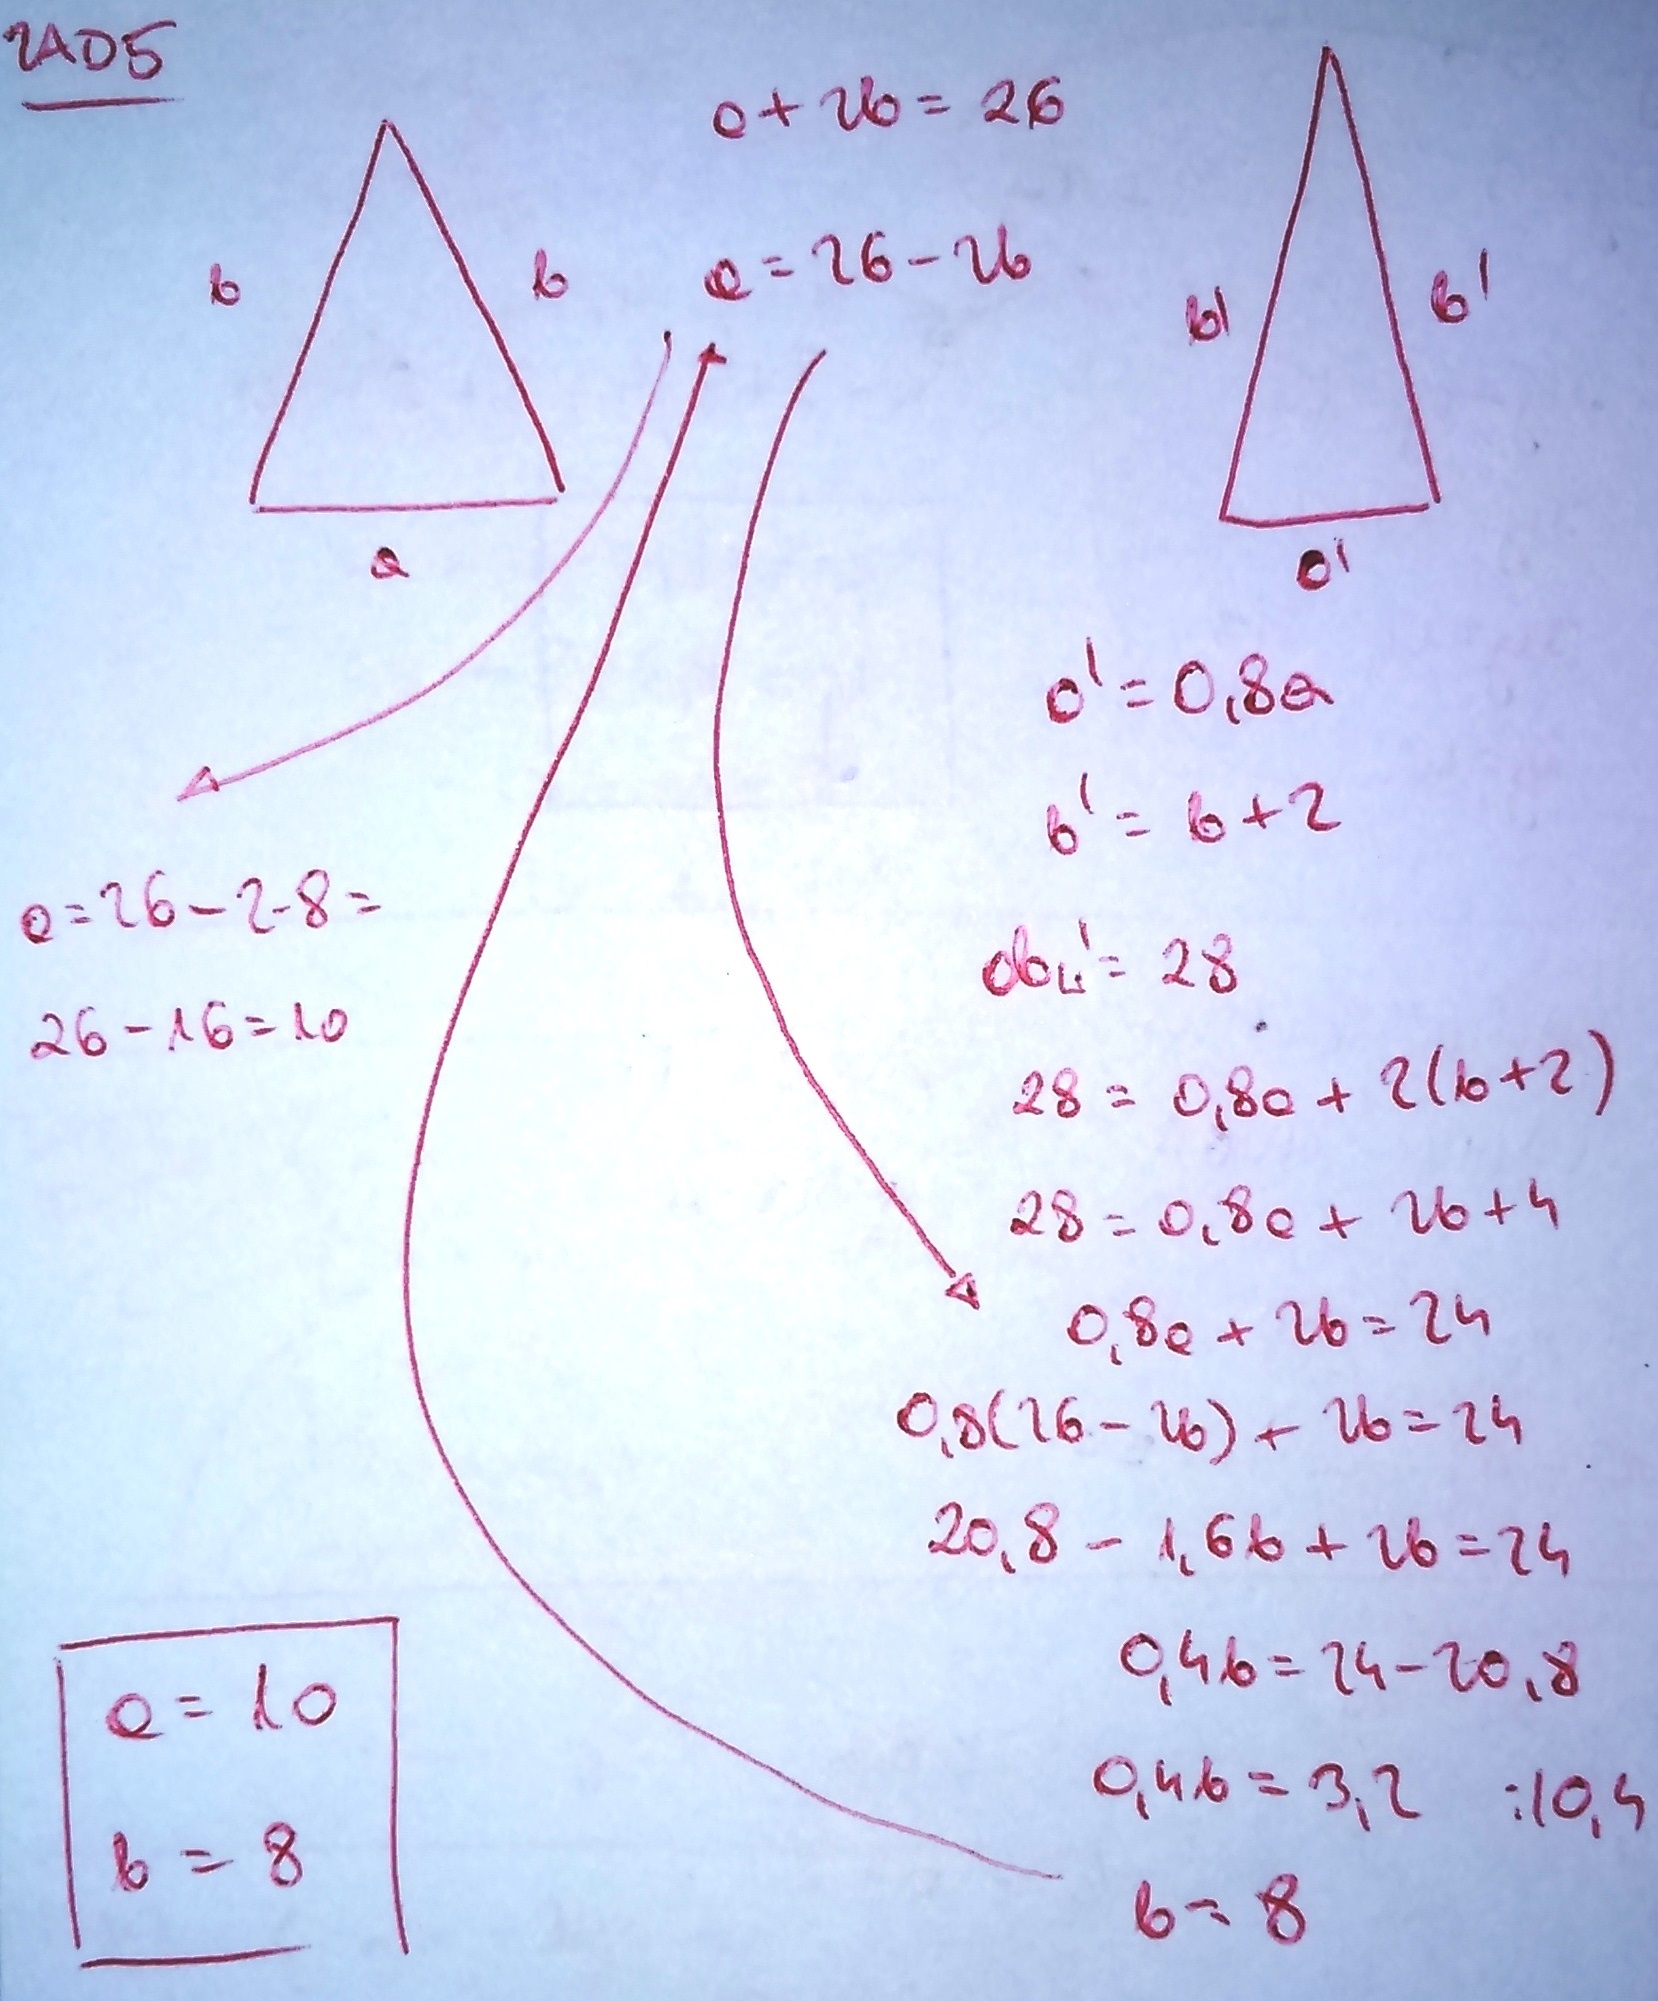 ZAD5
a + 2b = 26
a = 26 - 2b
b
b
a
b'
b'
a'
a' = 0,8a
b' = b + 2
obw' = 28
28 = 0,8a + 2(b+2)
28 = 0,8a + 2b + 4
0,8a + 2b = 24
0,8(26 - 2b) + 2b = 24
20,8 - 1,6b + 2b = 24
0,4b = 24 - 20,8
0,4b = 3,2 :10,4
b = 8
a = 26 - 2·8 =
26 - 16 = 10
a = 10
b = 8